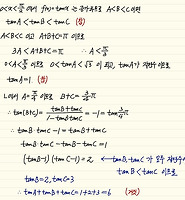 0<x<π/2 에서 f(x)=tanx 는 증가함수로 A<B<C 이면
tanA<tanB<tanC (참)
A<B<C 이고 A+B+C=π 이므로
3A<A+B+C=π ∴ A<π/3
0<A<π/3 에서 0<tanA<√3 이 되고, tanA가 정수 이므로
tanA=1. (참)
A=π/4 이므로 B+C=3/4π
∴ tan(B+C)= (tanB+tanC)/(1-tanB·tanC) =-1=tan3/4π
∴ tanB·tanC-1=tanB+tanC
tanB·tanC-tanB-tanC=1
(tanB-1)(tanC-1)=2 ←tanB, tanC 가 모두 자연수
tanB<tanC 이므로
tanB=2, tanC=3
∴ tanA+tanB+tanC=1+2+3=6 (거짓)